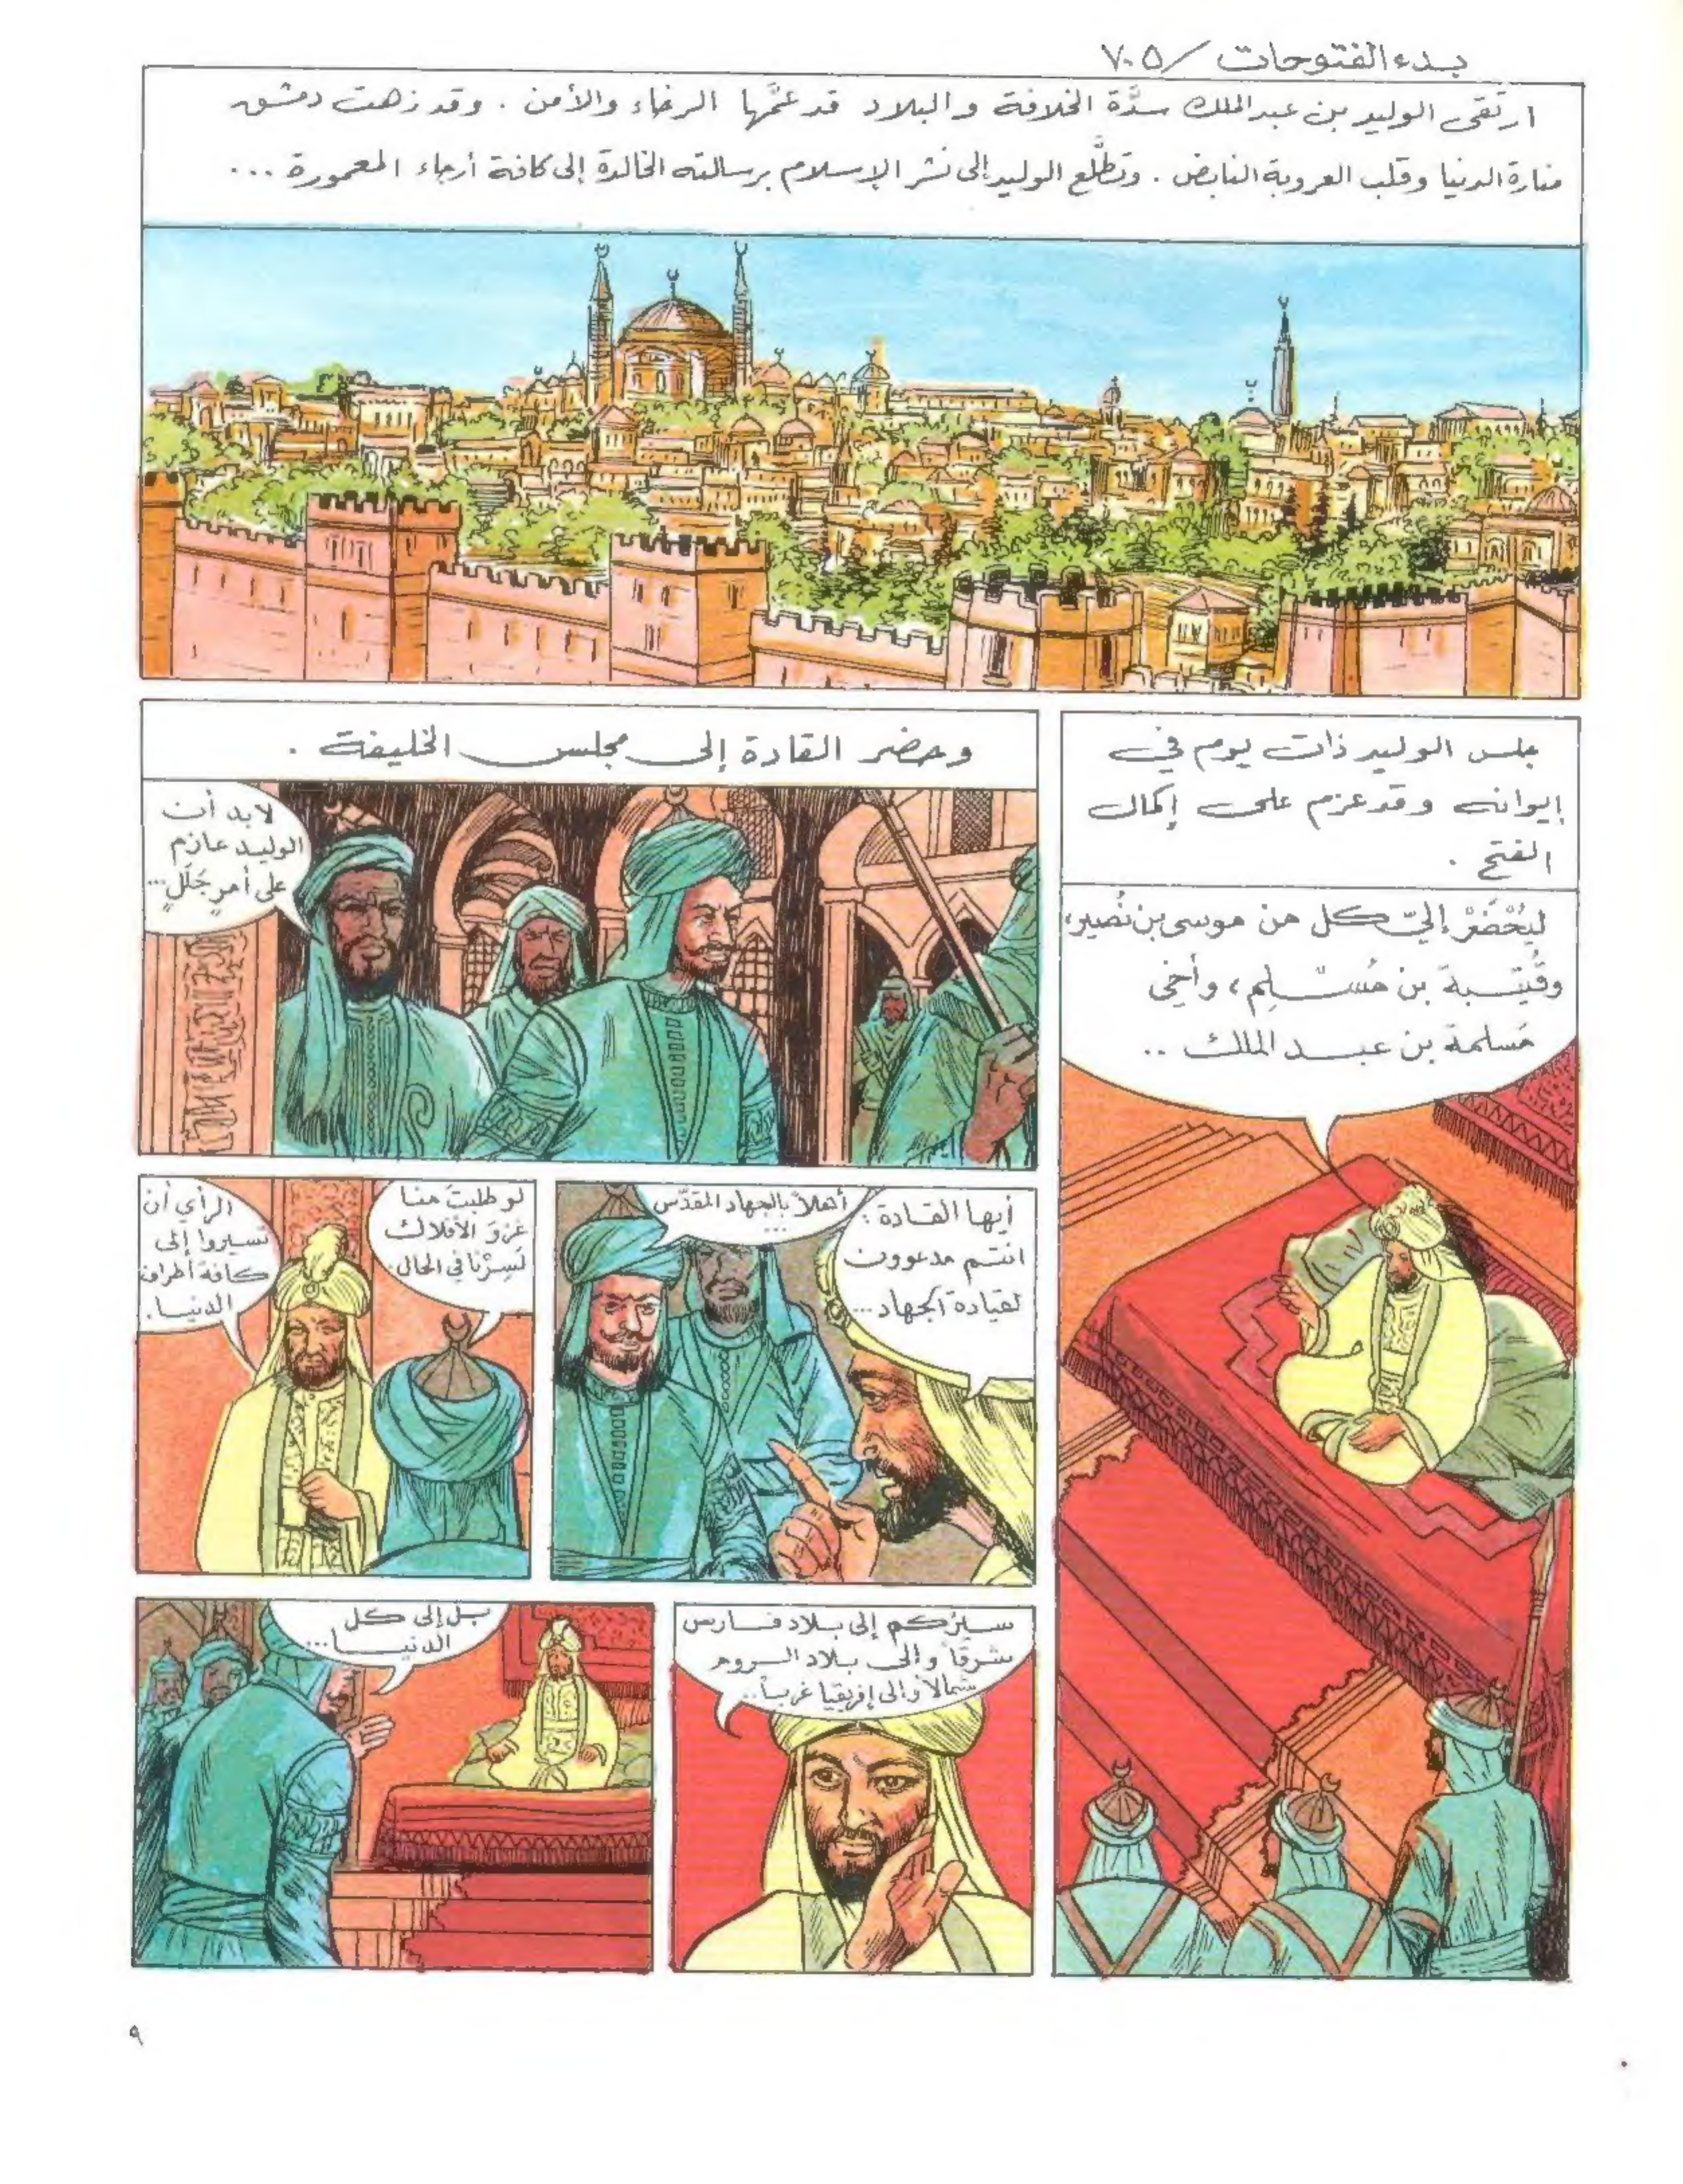 بدء الفتوحات / ٧٠٥
ارتقى الوليد بن عبد الملك سدَّة الخلافة والبلاد قد عمَّها الرخاء والأمن . وقد زهت دمشق
منارة الدنيا وقلب العروبة النابض . وتطلَّع الوليد إلى نشر الإسلام برسالته الخالدة إلى كافة أرجاء المعمورة ...
جلس الوليد ذات يوم في
إيوانه وقد عزم على إكمال
الفتح .
ليُحْضَرْ إليّ كل من موسى بن نُصير،
وقُتَيْبة بن مُسْلِم، وأخي
مَسلمة بن عبد الملك ..
وحضر القادة إلى مجلس الخليفة .
لابد أن
الوليد عازم
على أمرٍ جَلَلٍ ...
أيها القادة :
انتم مدعوون
لقيادة الجهاد ...
أهلاً بالجهاد المقدّس
...
لو طلبتَ منا
غزوَ الأفلاك
لَسِرْنا في الحال .
الرأي أن
تسيروا إلى
كافة أطراف
الدنيا .
سيرُكم إلى بلاد فارس
شرقاً وإلى بلاد الروم
شمالاً وإلى إفريقيا غرباً ..
بل إلى كل
الدنيا ...
٩